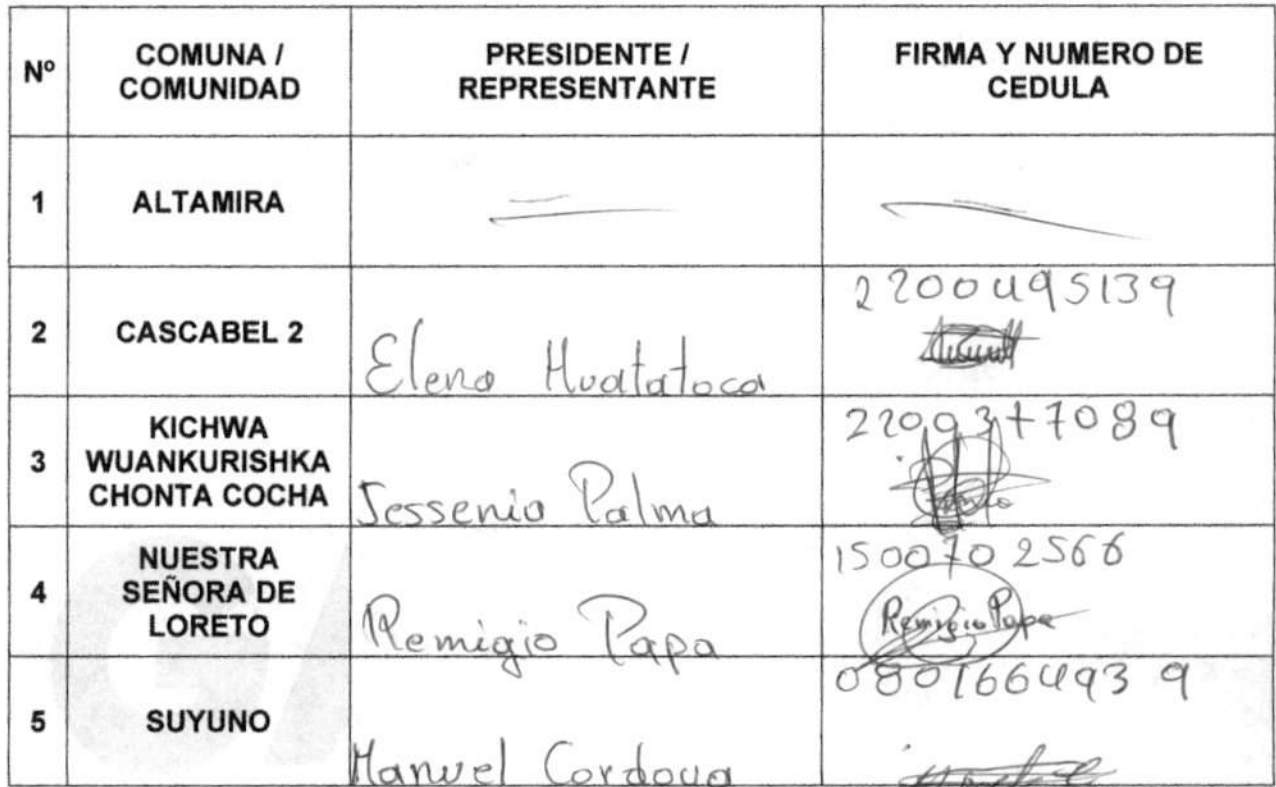 Nº COMUNA / COMUNIDAD PRESIDENTE / REPRESENTANTE FIRMA Y NUMERO DE CEDULA
1 ALTAMIRA
2 CASCABEL 2 Elena Huatatoca 2200495139
3 KICHWA WUANKURISHKA CHONTA COCHA Jessenia Palma 2200377089
4 NUESTRA SEÑORA DE LORETO Remigio Papa 1500702566
Remigio Papa
5 SUYUNO Manuel Cordova 0801664939